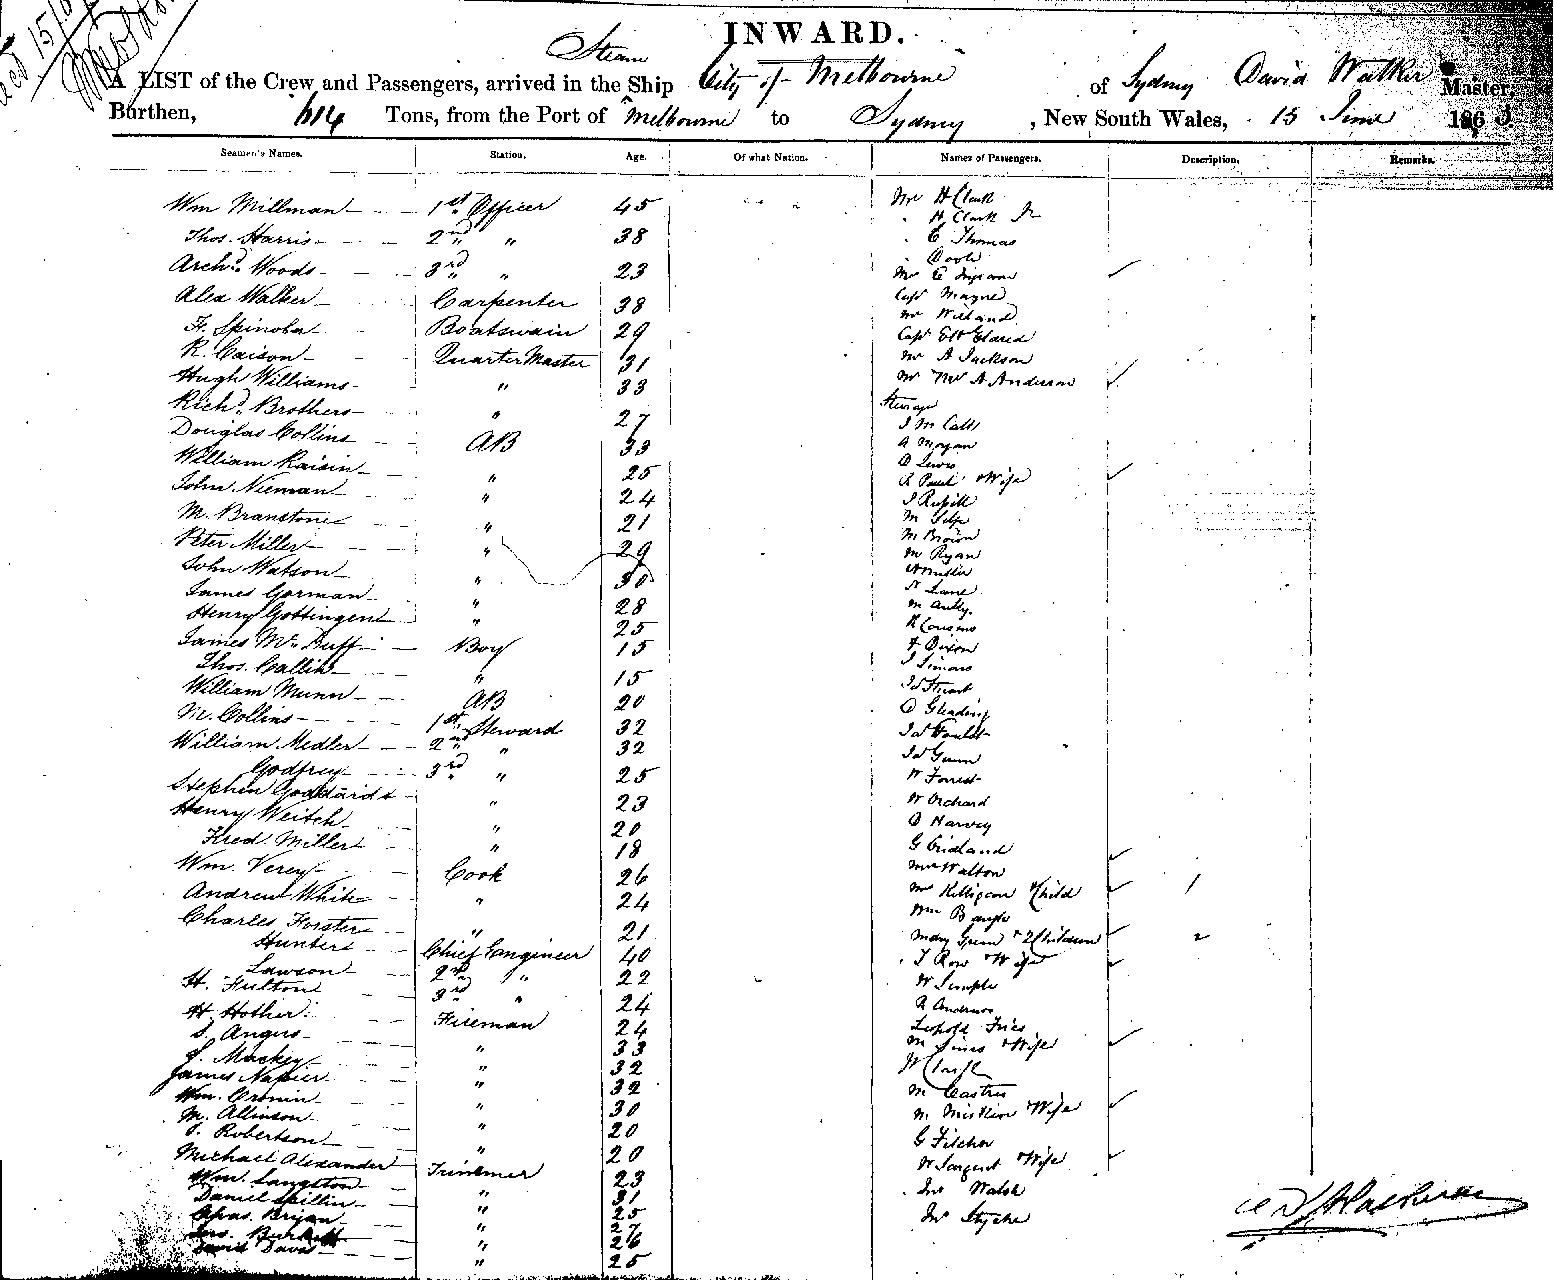 INWARD.
Steam
A LIST of the Crew and Passengers, arrived in the Ship City of Melbourne of Sydney David Walker Master,
Burthen, 614 Tons, from the Port of Melbourne to Sydney , New South Wales, 15 June 186
Seamen's Names. Station. Age. Of what Nation. Names of Passengers. Description. Remarks.
Wm Millman 1st Officer 45
Thos. Harris 2nd " " 38
Archd. Woods 3rd " " 23
Alex Walker Carpenter 38
F. Spinola Boatswain 29
R. Caison Quarter Master 31
Hugh Williams " 33
Richd. Brothers " 27
Douglas Collins AB 33
William Raisin " 25
John Nieman " 24
M. Branstone " 21
Peter Miller " 29
John Watson " 30
James Gorman " 28
Henry Gottingen " 25
James Mc.Duff Boy 15
Thos. Callin " 15
William Munn AB 20
M. Collins 1st. Steward 32
William Medler 2nd " 32
Godfrey 3rd " 25
Stephen Goddard " 23
Henry Weitch " 20
Fred. Miller " 18
Wm. Verey Cook 26
Andrew White " 24
Charles Forster " 21
Hunter Chief Engineer 40
Lawson 2nd " 22
H. Fulton 3rd " 24
H. Hother Fireman 24
S. Angus " 33
J. Mackey " 32
James Napier " 32
Wm. Cronin " 30
M. Allinson " 20
J. Robertson " 20
Michael Alexander Trimmer 23
Wm. Langston " 31
Daniel " 25
Chas. Bryan " 27
" 26
David Davis " 25
Mr H Clark
" H Clark Jr
" E Thomas
"
Mr E Ingram
Capt Mayne
Mr
Capt
Mr A Jackson
Mr Mrs A Anderson
Steerage
J McCall
A Morgan
D Lewis
R Wife
J Russell
M
M Brown
M Ryan
A Miller
A Lane
M
R Cousins
F Dixon
J Simons
Jas Stuart
C Gleading
Jas
Jas Gunn
W Forrest
W Orchard
D Harvey
G Cridland
Mrs Walton
Mrs Killigan Child 1
Wm
Mary Green + 2 Children 2
T Row Wife
W Semple
R Anderson
Leopold Fries
M Sims + Wife
W
M Castree
M Wife
G Filcher
W Sargent Wife
Jno Walsh